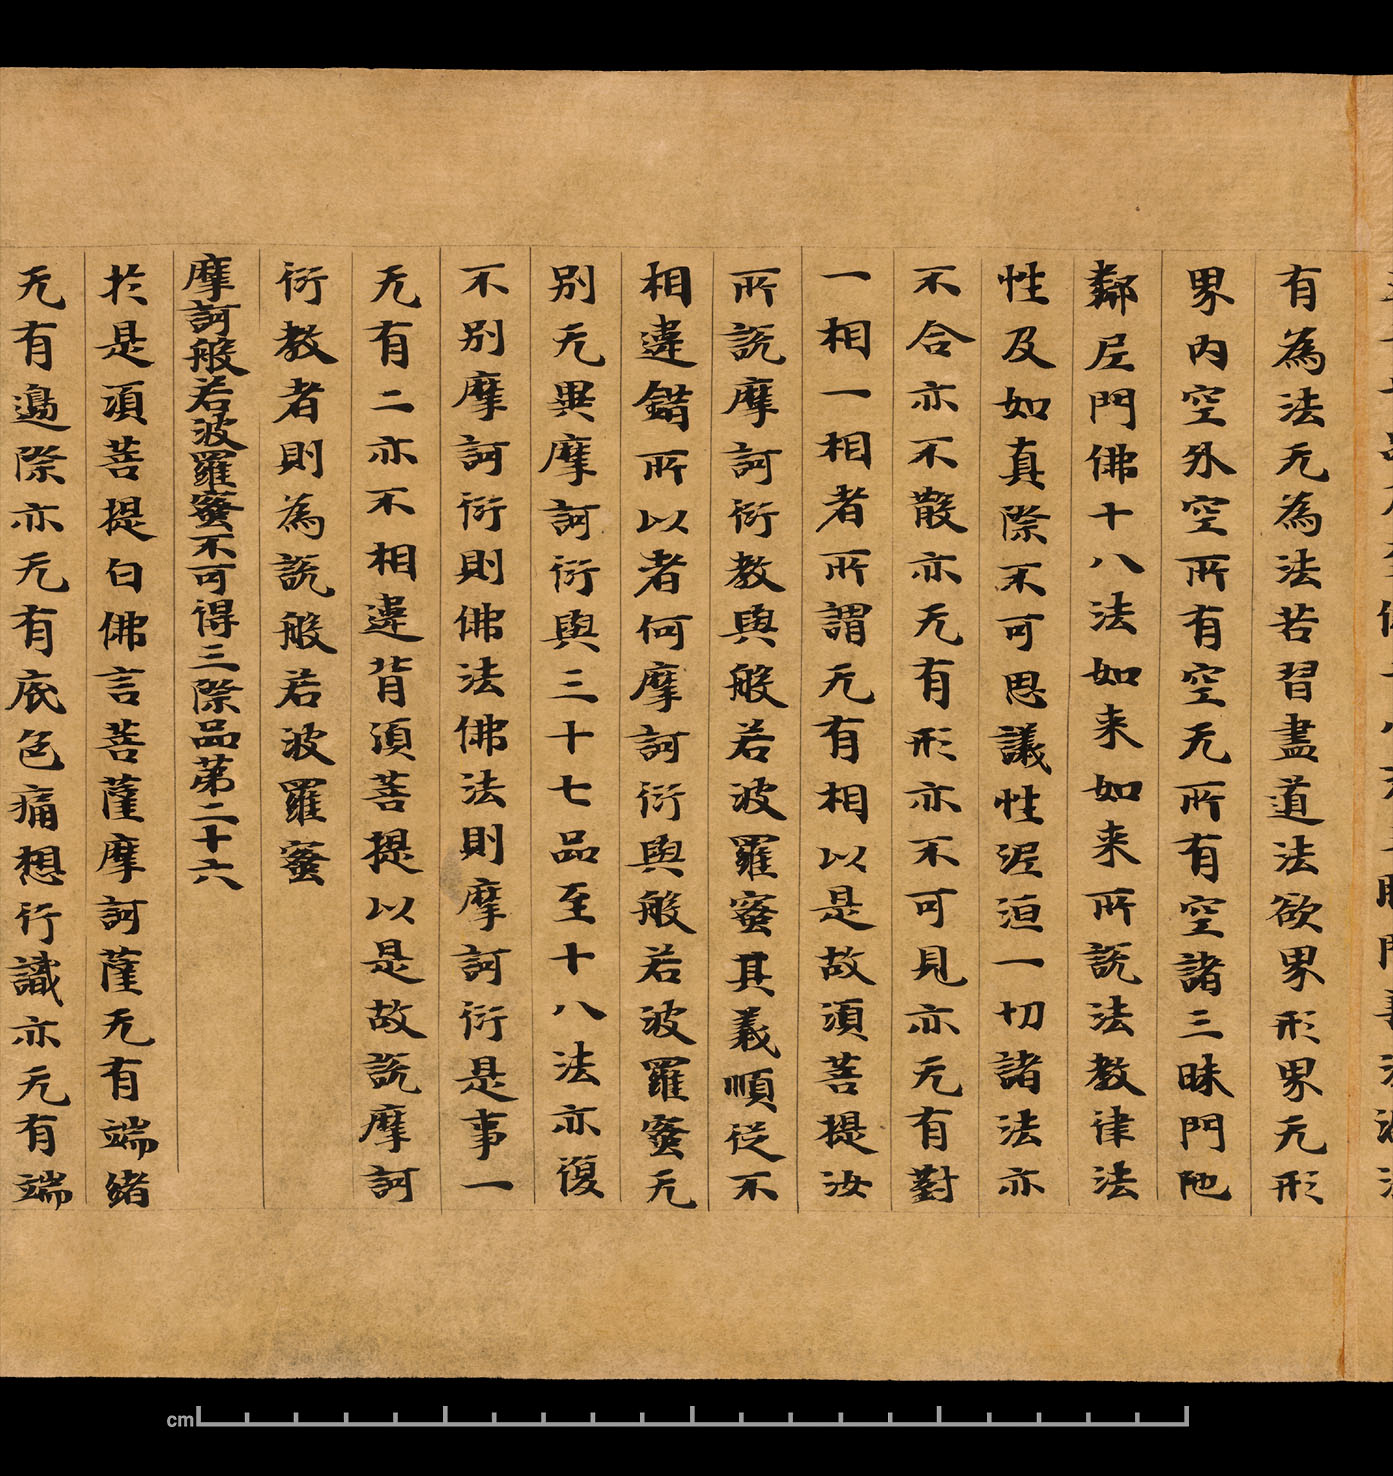 有為法无為法苦習盡道法欲界形界无形
界內空外空所有空无所有空諸三昧門陁
鄰尼門佛十八法如来如来所說法教律法
性及如真際不可思議性泥洹一切諸法亦
不合亦不散亦无有形亦不可見亦无有對
一相一相者所謂无有相以是故湏菩提汝
所說摩訶衍教與般若波羅蜜其義順從不
相違錯所以者何摩訶衍與般若波羅蜜无
別无異摩訶衍與三十七品至十八法亦復
不別摩訶衍則佛法佛法則摩訶衍是事一
无有二亦不相違背湏菩提以是故說摩訶
衍教者則為說般若波羅蜜
摩訶般若波羅蜜不可得三際品苐二十六
扵是湏菩提白佛言菩薩摩訶薩无有端緒
无有邊際亦无有底色痛想行識亦无有端
cm